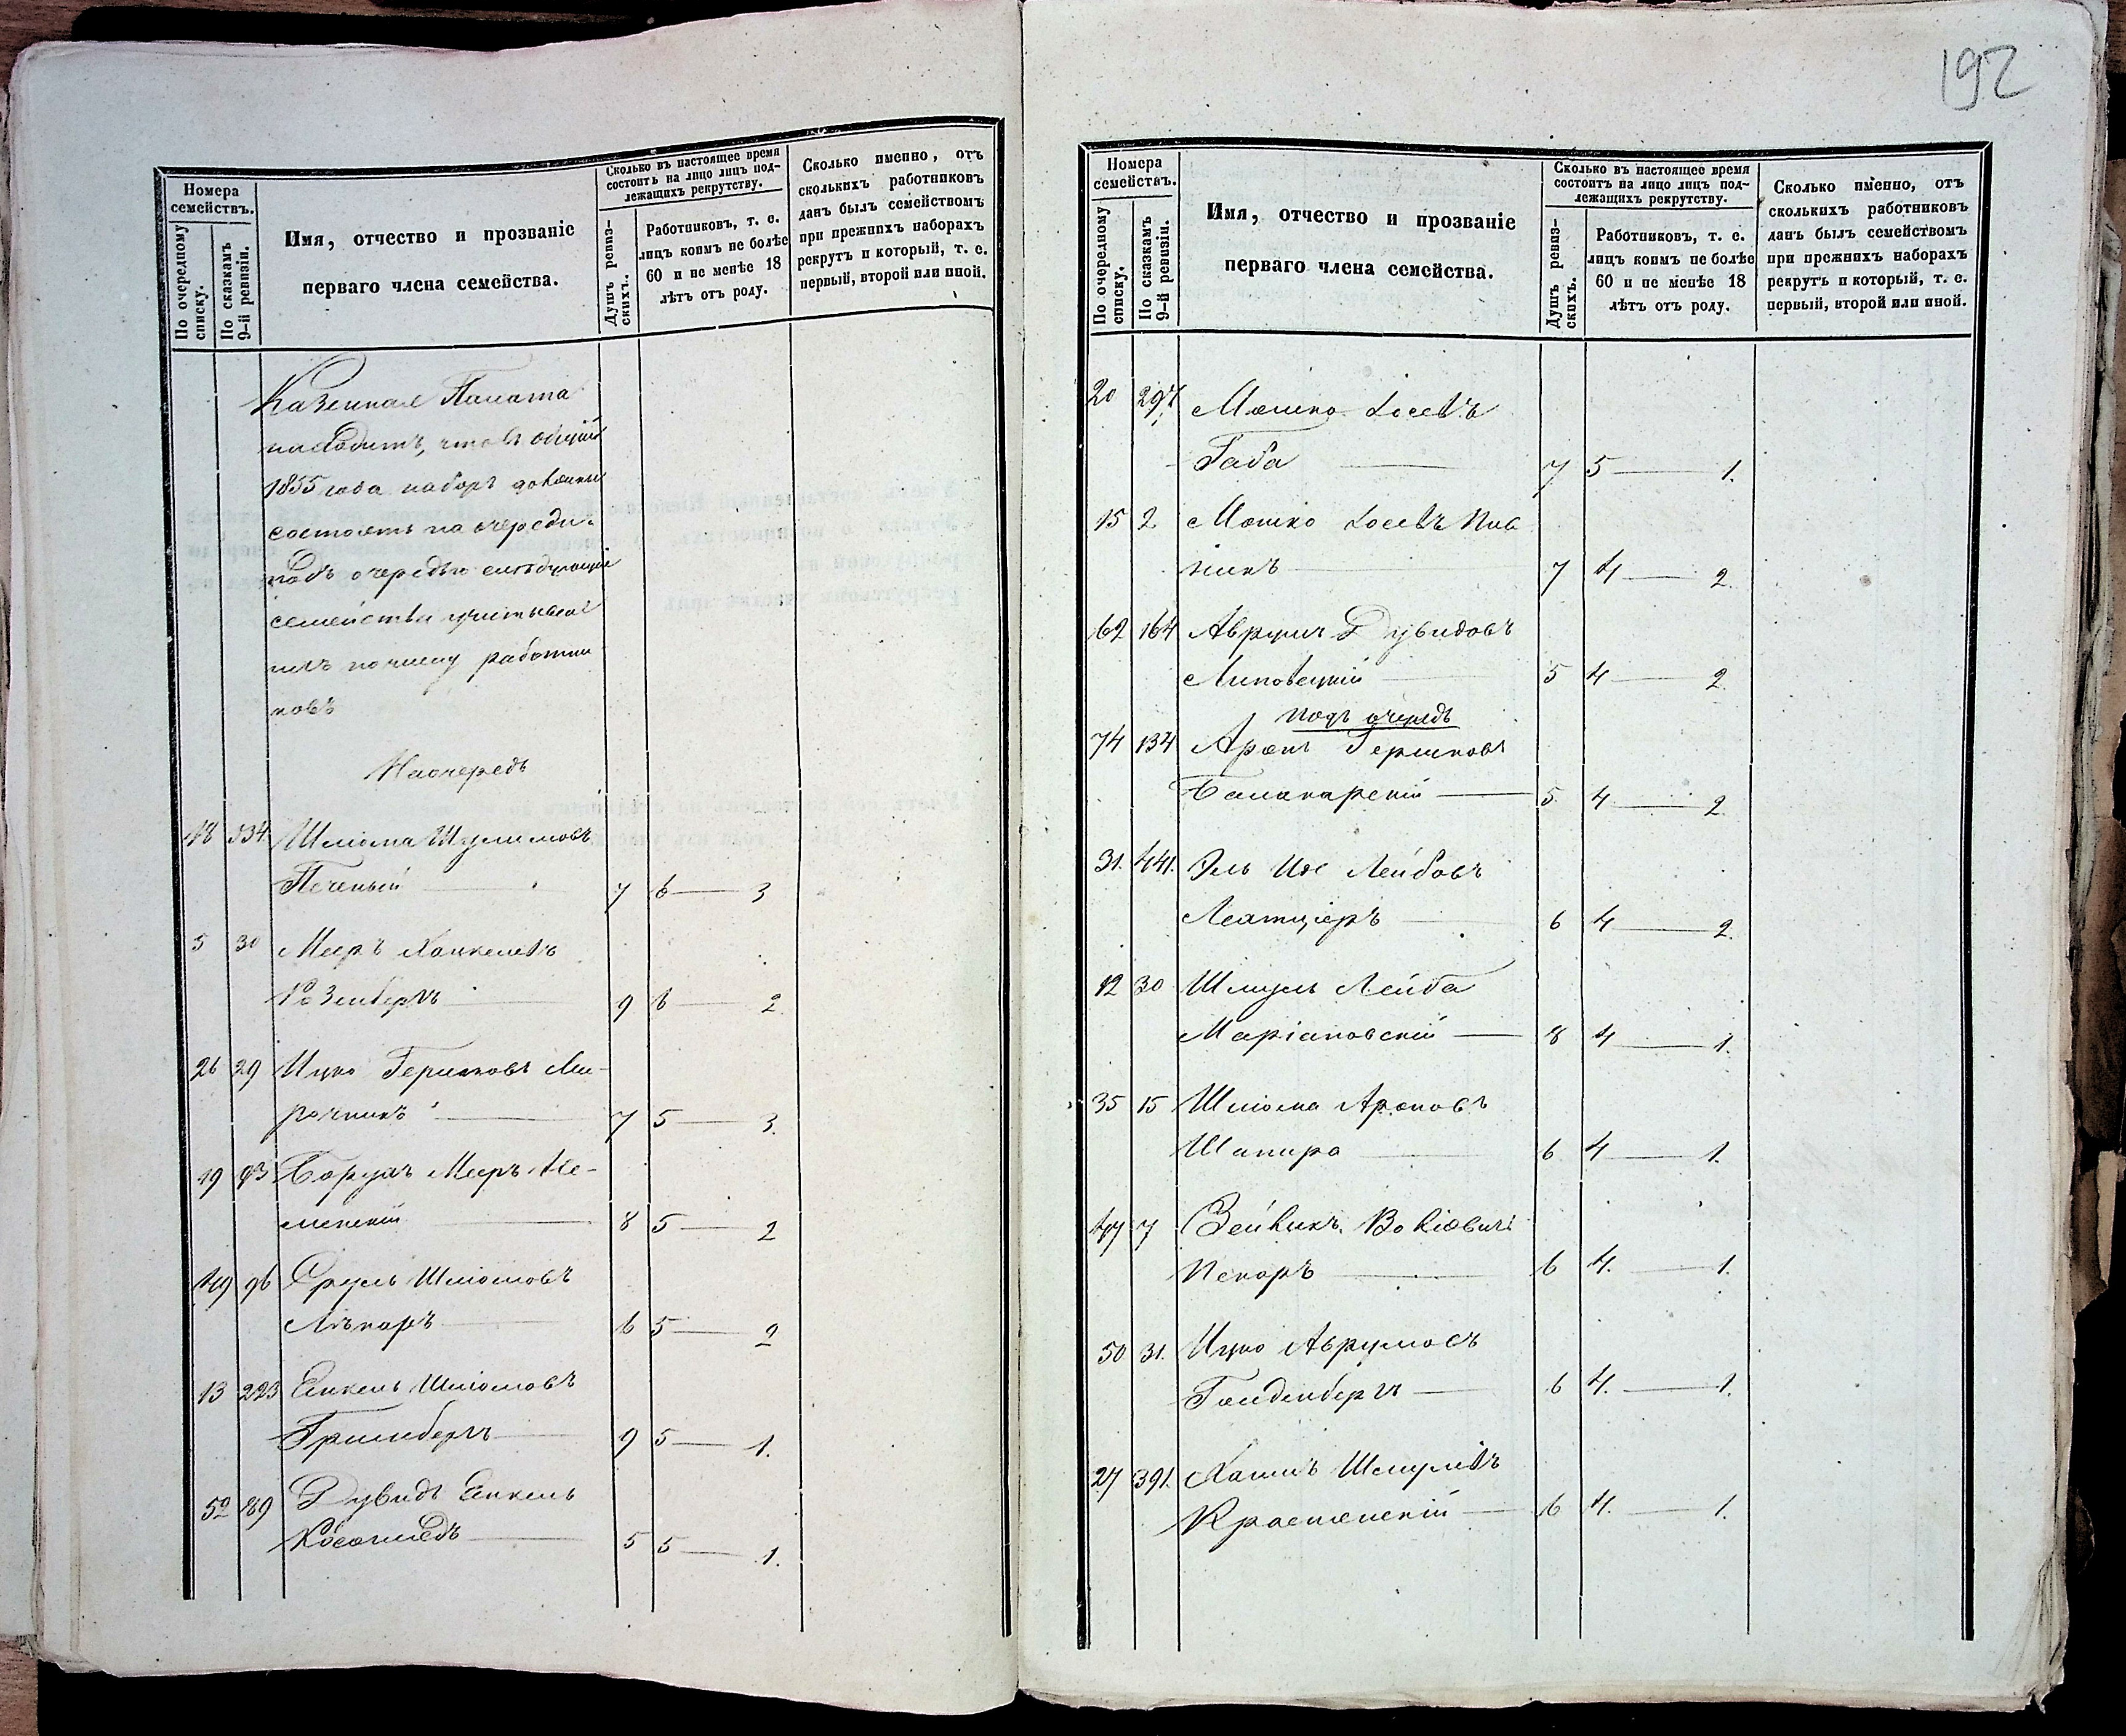 Номера
семействъ.
По очередному
списку.
По сказкамъ
9-й ревизіи.
Имя, отчество и прозваніе
перваго члена семейства.
Сколько въ настоящее время
состоитъ на лицо лицъ под-
лежащихъ рекрутству.
Душъ ревиз-
скихъ.
Работниковъ, т. е.
лицъ коимъ не болѣе
60 и не менѣе 18
лѣтъ отъ роду.
Сколько именно, отъ
сколькихъ работниковъ
данъ былъ семействомъ
при прежнихъ наборахъ
рекрутъ и который, т. е.
первый, второй или иной.
Казенная Палата
находитъ, что въ общій
1855 года наборъ должны
состоять на очереди и
подъ очередью слѣдующіе
семейства
ихъ по числу работни
ковъ
На очередь
48 534 Шлiома Шулимовъ
Печеный 7 6 — 3
5 30 Меръ Хацкелевъ
Розенбергъ 9 6 — 2
26 29 Ицко Гершковъ Ми-
рочникъ 7 5 — 3.
19 93 Борухъ Меръ Не-
менскій 8 5 — 2
49 96 Сруль Шліомовъ
Лѣкарь 6 5 — 2
13 223 Янкель Шліомовъ
Гринбергъ 9 5 — 1.
52 89 Дувидъ Янкель
5 5 — 1.
192
Номера
семействъ.
По очередному
списку.
По сказкамъ
9-й ревизіи.
Имя, отчество и прозваніе
перваго члена семейства.
Сколько въ настоящее время
состоитъ на лицо лицъ под-
лежащихъ рекрутству.
Душъ ревиз-
скихъ.
Работниковъ, т. е.
лицъ коимъ не болѣе
60 и не менѣе 18
лѣтъ отъ роду.
Сколько именно, отъ
сколькихъ работниковъ
данъ былъ семействомъ
при прежнихъ наборахъ
рекрутъ и который, т. е.
первый, второй или иной.
20 297 Мошко Iосевъ
Габа 7 5 — 1.
15 2 Мошко Iосевъ Пив
никъ 7 4 — 2.
62 164 Аврумъ Дувидовъ
Липовецкій 5 4 — 2.
Подъ очередь
74 134 Аронъ Гершковъ
Балакарскій 5. 4 — 2.
31. 441. Эль Лейбовъ
6 4 — 2.
12 30 Шмуль Лейба
Маріановскій 8 4 — 1.
35 15 Шліома Ароновъ
Шапиро 6 4 — 1.
47 7 Зейликъ
Пекаръ 6 4. — 1.
50 31. Ицко Аврумовъ
Голденбергъ 6 4. — 1.
27 391. Хаимъ Шмулевъ
Красненскій 6 4. — 1.